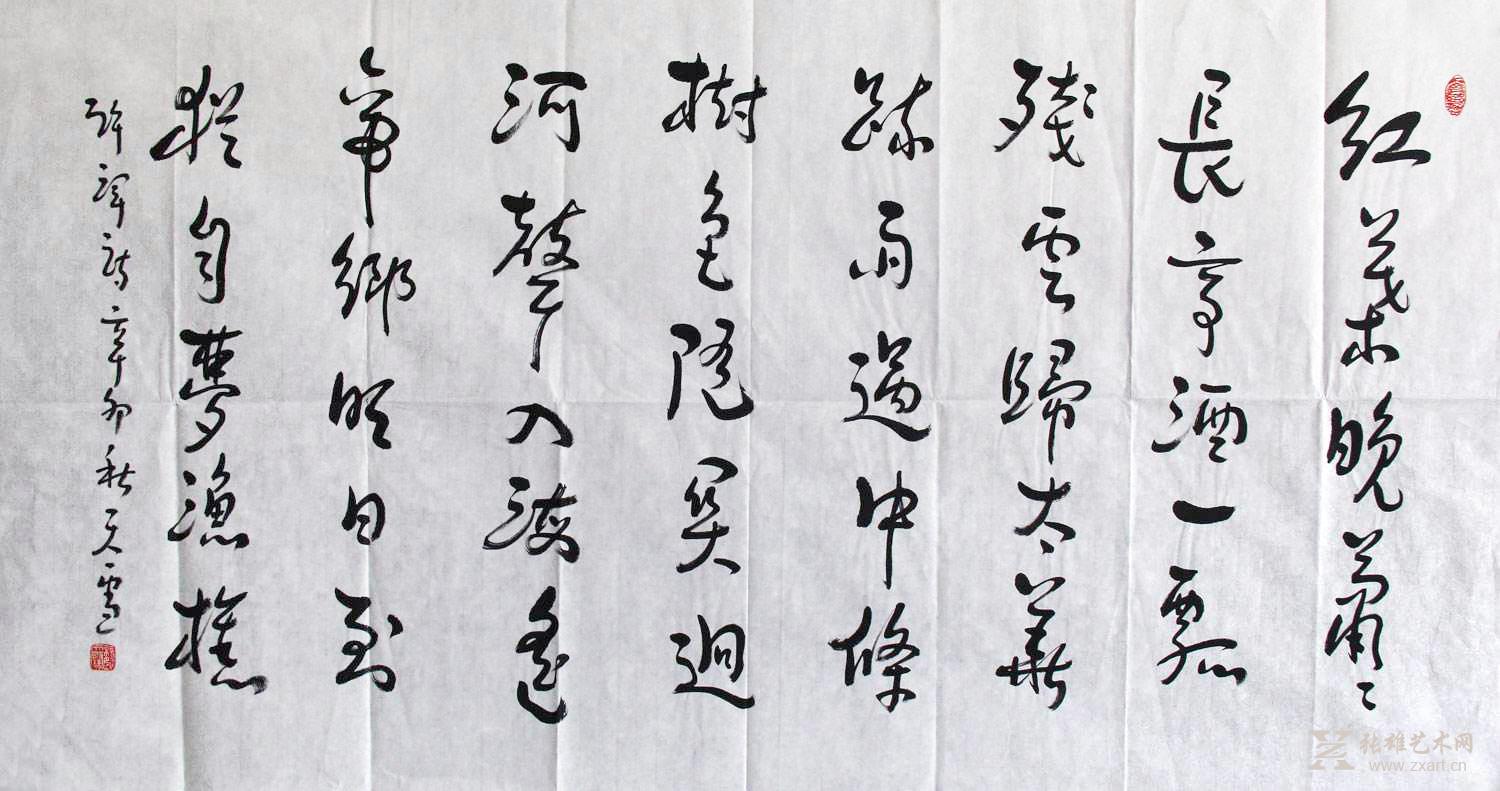 紅葉晚蕭〻
長亭酒一瓢
殘雲歸太華
疏雨過中條
樹色隨關迥
河聲入海遙
帝鄉明日到
猶自夢漁樵
許渾詩辛卯秋天雪
张雄艺术网
www.zxart.cn